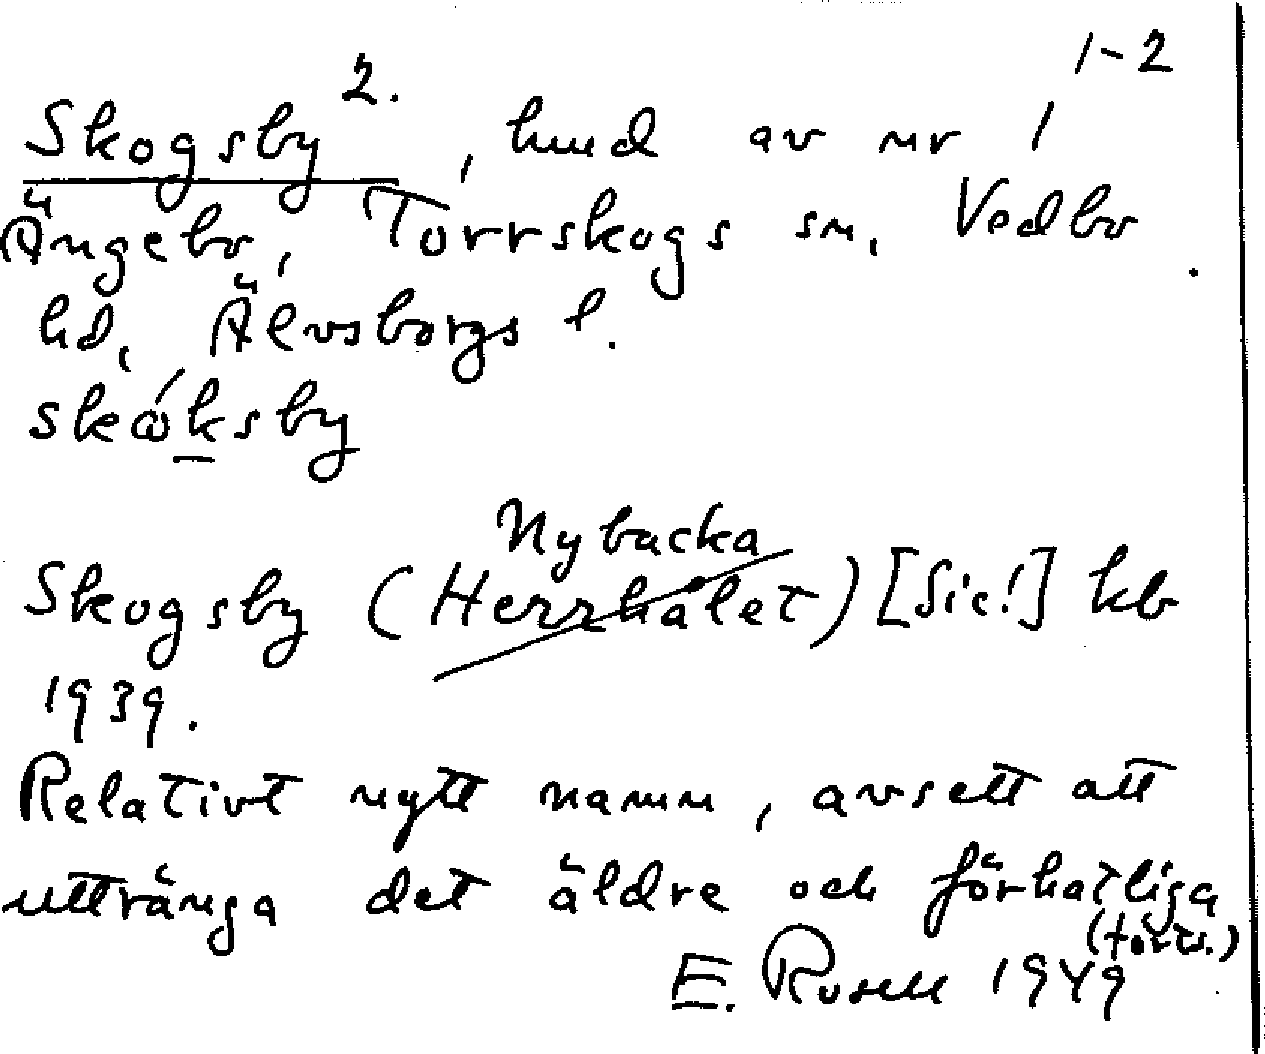 1-2
Skogsby 2., hmd av nr 1
Ängebo, Torrskogs sn, Vedbo
hd, Älvsborgs l.
skóksby
Nybacka
Skogsby (Herrhålet) [Sic!] kb
1939.
Relativt nytt namn, avsett att
uttränga det äldre och förhatliga
(forts.)
E. Rosell 1949